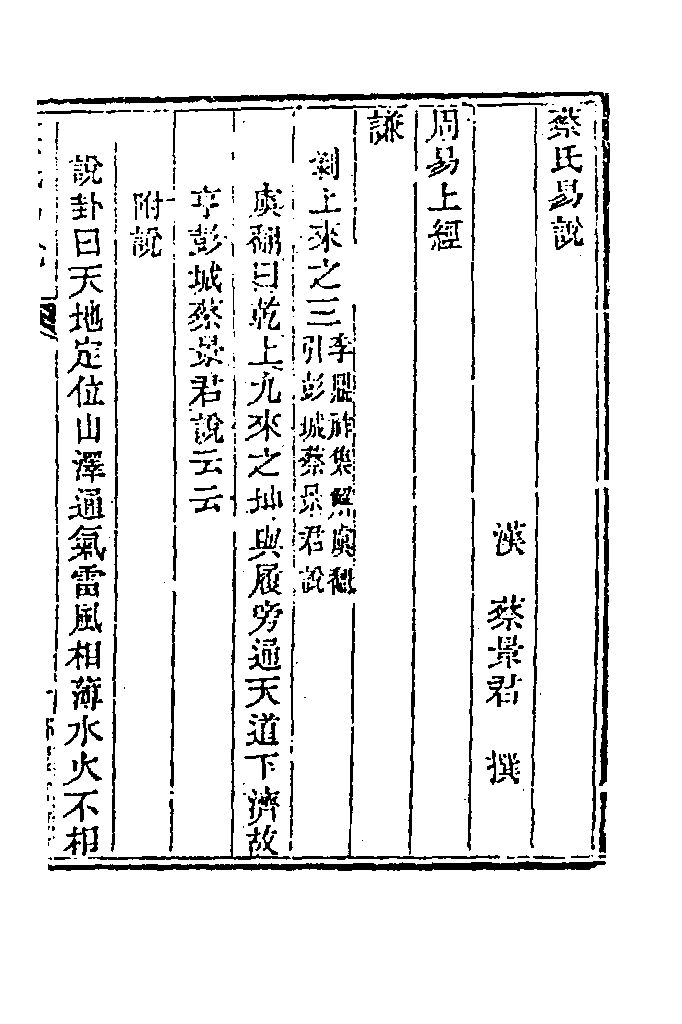 蔡氏易說
漢 蔡景君 撰
周易上經
謙
剝上來之三李鼎祚集解虞翻
引彭城蔡景君說
虞翻曰乾上九來之坤與履旁通天道下濟故
亨彭城蔡景君說云云
附說
說卦曰天地定位山澤通氣雷風相薄水火不相